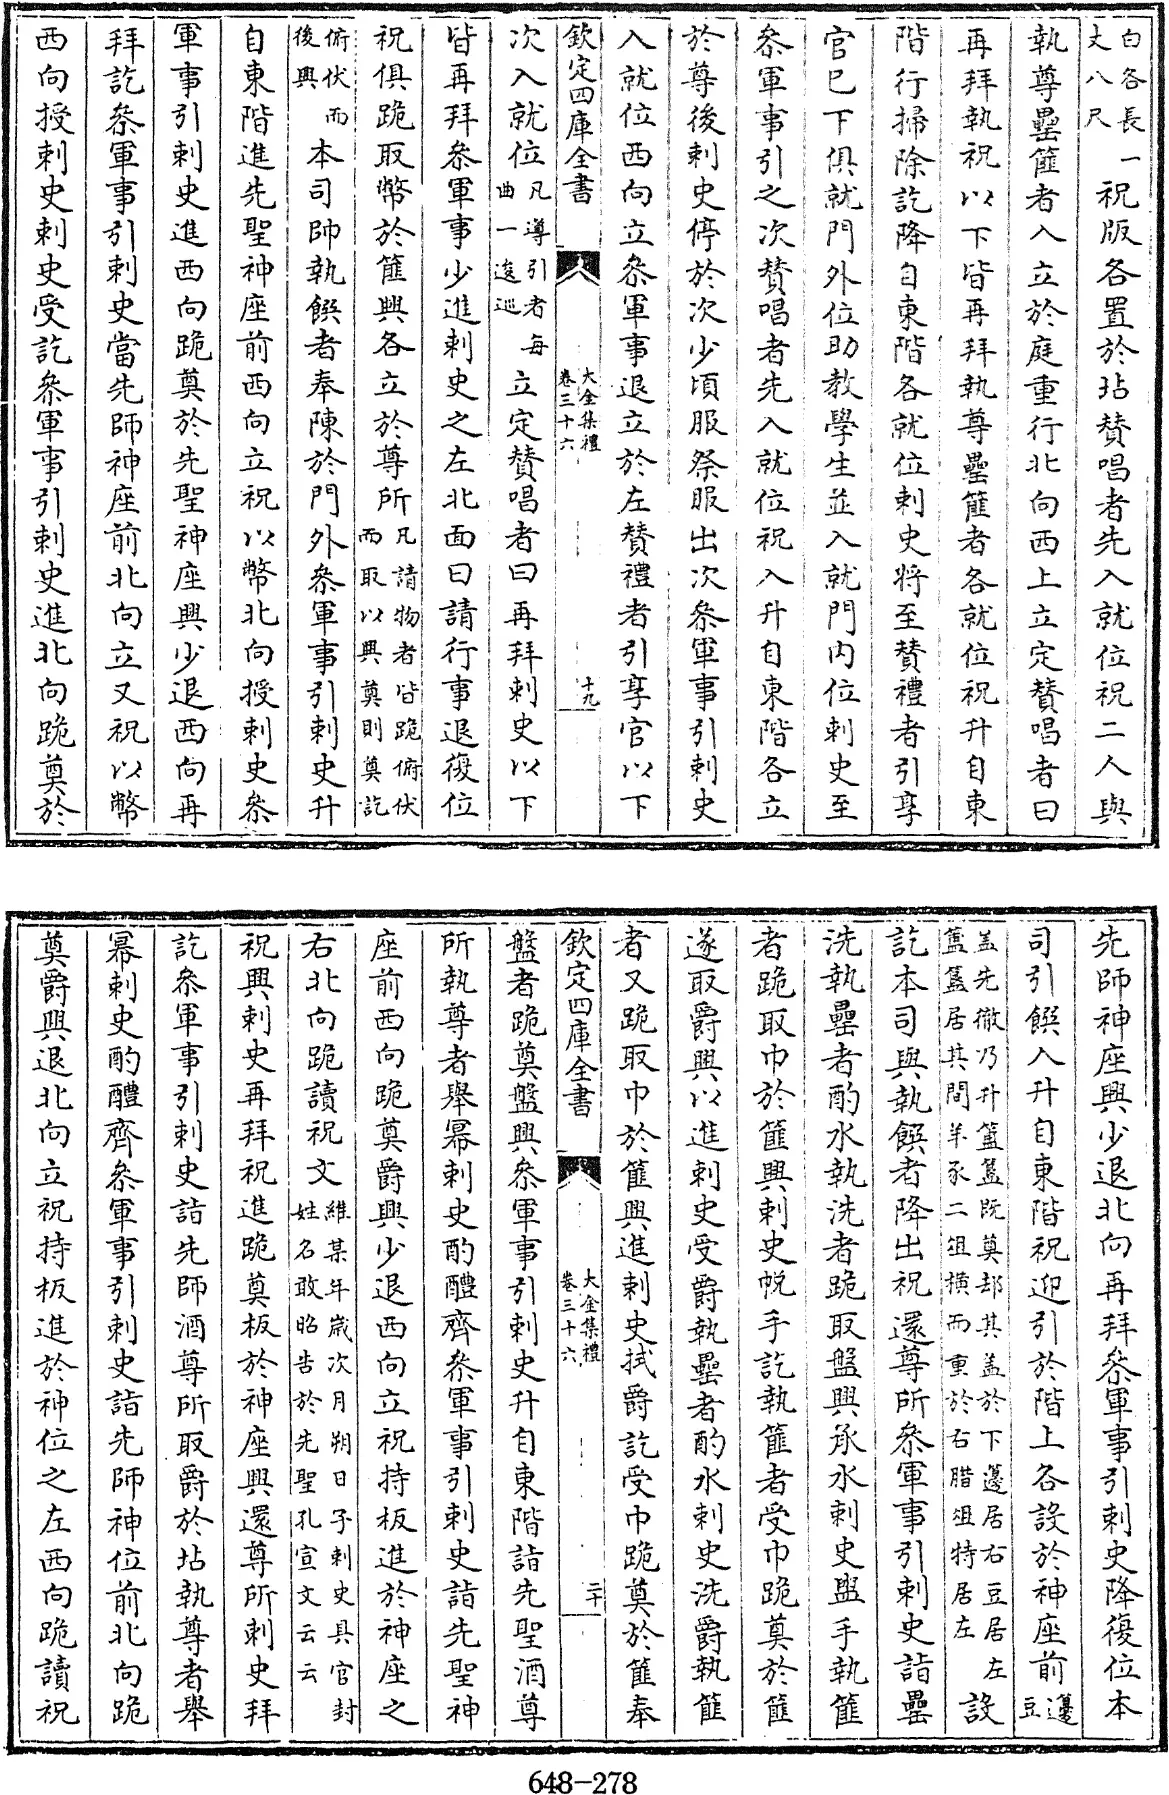 白各長一丈八尺祝版各置於坫賛唱者先入就位祝二人與
執尊罍篚者入立於庭重行北向西上立定賛唱者曰
再拜執祝以下皆再拜執尊罍篚者各就位祝升自東
階行掃除訖降自東階各就位刺史將至賛禮者引享
官已下俱就門外位助教學生並入就門内位刺史至
叅軍事引之次賛唱者先入就位祝入升自東階各立
於尊後刺史停於次少頃服祭服出次叅軍事引刺史
入就位西向立叅軍事退立於左賛禮者引享官以下
欽定四庫全書 大金集禮 卷三十六 十九
次入就位凡導引者每曲一逡巡立定賛唱者曰再拜刺史以下
皆再拜叅軍事少進刺史之左北面曰請行事退復位
祝俱跪取幣於篚興各立於尊所凡請物者皆跪俯伏而取以興奠則奠訖
俯伏而後興本司帥執饌者奉陳於門外叅軍事引刺史升
自東階進先聖神座前西向立祝以幣北向授刺史叅
軍事引刺史進西向跪奠於先聖神座興少退西向再
拜訖叅軍事引刺史當先師神座前北向立又祝以幣
西向授刺史刺史受訖叅軍事引刺史進北向跪奠於
先師神座興少退北向再拜叅軍事引刺史降復位本
司引饌入升自東階祝迎引於階上各設於神座前籩豆
盖先徹乃升簠簋既奠却其盖於下籩居右豆居左簠簋居其間羊豕二俎横而重於右腊俎特居左設
訖本司與執饌者降出祝還尊所叅軍事引刺史詣罍
洗執罍者酌水執洗者跪取盤興承水刺史盥手執篚
者跪取巾於篚興刺史帨手訖執篚者受巾跪奠於篚
遂取爵興以進刺史受爵執罍者酌水刺史洗爵執篚
者又跪取巾於篚興進刺史拭爵訖受巾跪奠於篚奉
欽定四庫全書 大金集禮 卷三十六 二十
盤者跪奠盤興叅軍事引刺史升自東階詣先聖酒尊
所執尊者舉冪刺史酌醴齊叅軍事引刺史詣先聖神
座前西向跪奠爵興少退西向立祝持板進於神座之
右北向跪讀祝文維某年歲次月朔日子刺史具官封姓名敢昭告於先聖孔宣文云云
祝興刺史再拜祝進跪奠板於神座興還尊所刺史拜
訖叅軍事引刺史詣先師酒尊所取爵於坫執尊者舉
冪刺史酌醴齊叅軍事引刺史詣先師神位前北向跪
奠爵興退北向立祝持板進於神位之左西向跪讀祝
648-278